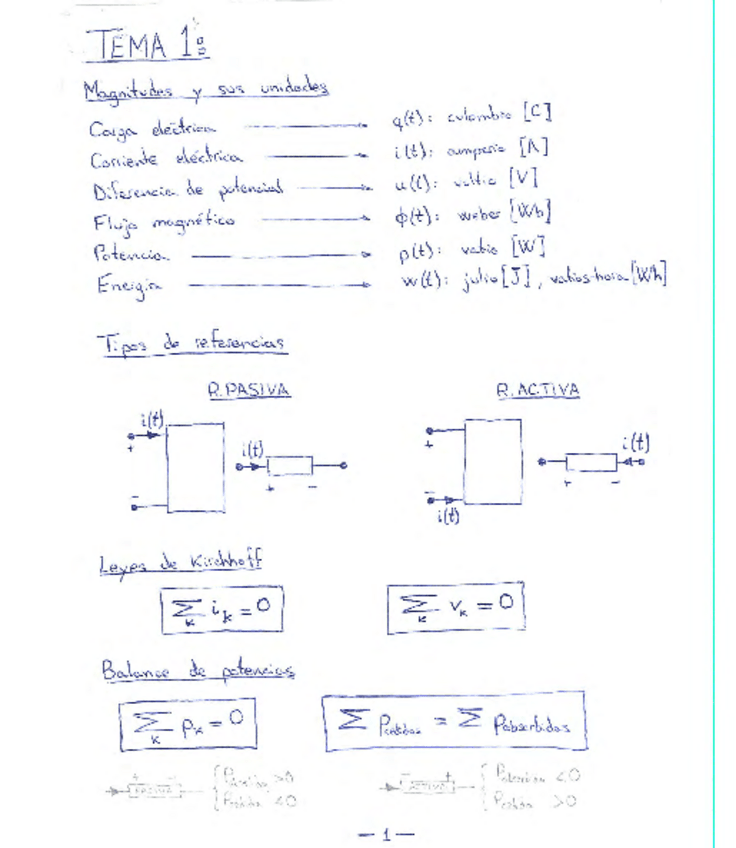 TEMA 1º
Magnitudes y sus unidades
Carga eléctrica → q(t): culombio [C]
Corriente eléctrica → i(t): amperio [A]
Diferencia de potencial → u(t): voltio [V]
Flujo magnético → ϕ(t): weber [Wb]
Potencia → p(t): vatio [W]
Energía → w(t): julio [J], vatios·hora [Wh]
Tipos de referencias
R. PASIVA R. ACTIVA
i(t) + − i(t) + −
+ − i(t) + − i(t)
Leyes de Kirchhoff
∑ₖ iₖ = 0 ∑ₖ vₖ = 0
Balance de potencias
∑ₖ pₖ = 0 ∑ Pcedidas = ∑ Pabsorbidas
+ − PASIVO { >0 − + ACTIVO { <0
{ Pcedida <0 { Pcedida >0
— 1 —